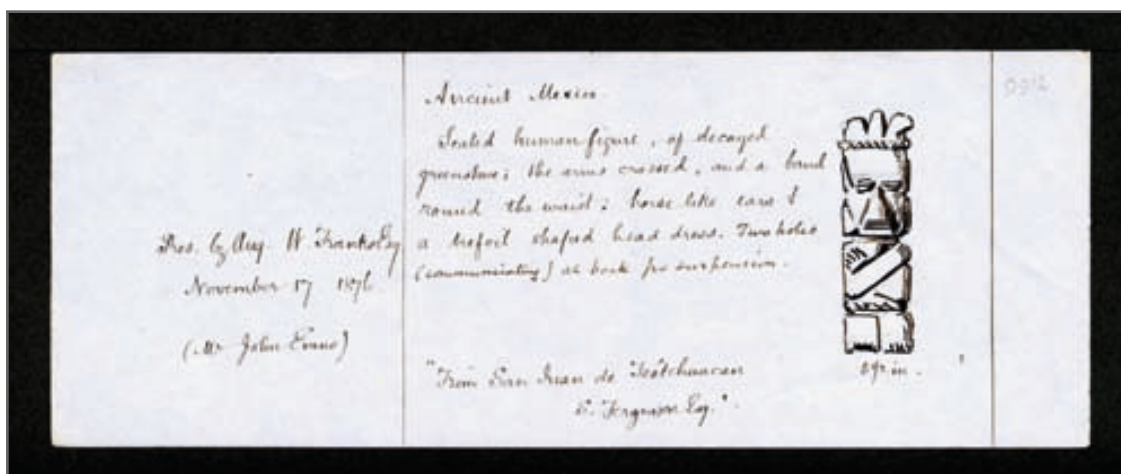 Pres. by Aug. W. Franks Esq
November 17 1876
(Mr John Evans)
Ancient Mexico.
Seated human figure, of decayed
greenstone; the arms crossed, and a band
round the waist; horse like ears &
a trefoil shaped head dress. Two holes
(communicating) at back for suspension.
"From San Juan de Teotihuacan
Ferguson Esq."
in.